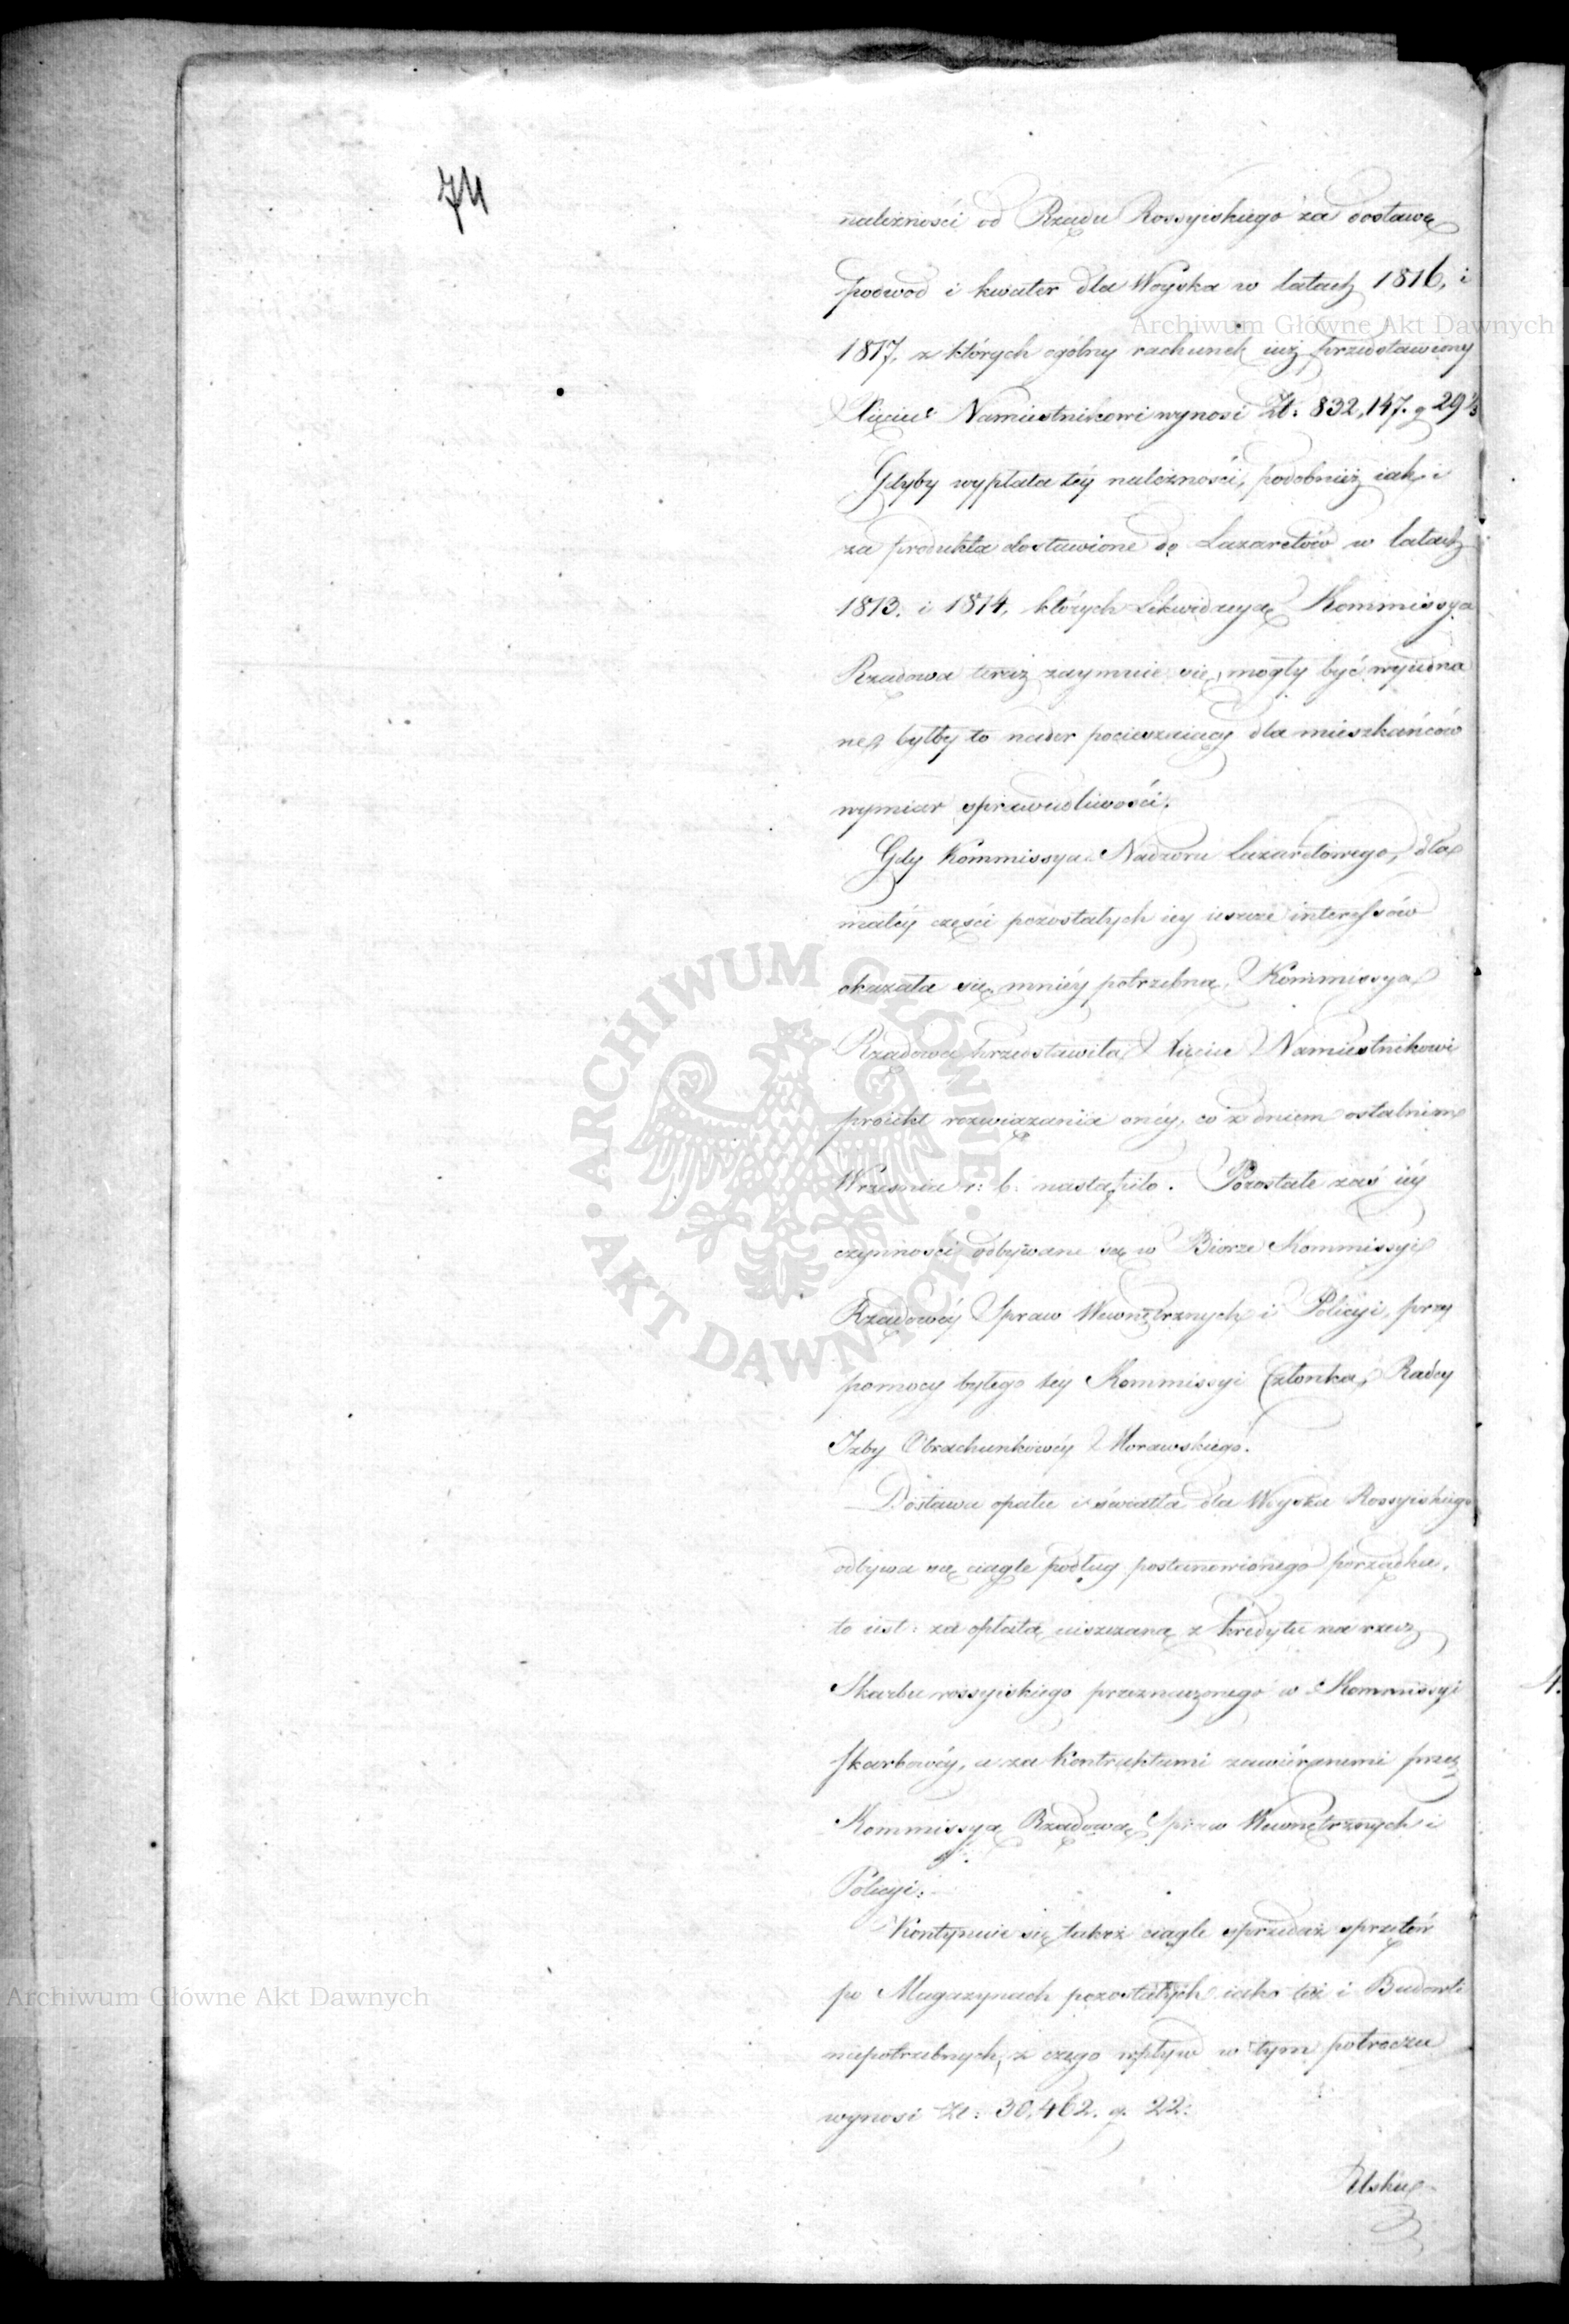 74
należności od Rządu Rossyiskiego za dostawę
podwod i kwater dla Woyska w latach 1816, i
1817, z których ogólny rachunek iuż przedstawiony
Xięciu Namiestnikowi wynosi Zł: 832,147. g 29 1/3
Gdyby wypłata téy należności, podobnież iak i
za produkta dostawione do Lazaretów w latach
1813. i 1814, których Likwidacyą Kommissya
Rządowa teraz zaymuie się, mogły być wyiedna
ne, byłby to nader pocieszaiący dla mieszkańców
wymiar sprawiedliwości.
Gdy Kommissya Nadzoru Lazaretowego, dla
małéy części pozostałych iey ieszcze interessów
okazała się mniéy potrzebną, Kommissya
Rządowa przedstawiła Xięciu Namiestnikowi
proiekt rozwiązania onéy, co z dniem ostatnim
Września r: b: nastąpiło. Pozostałe zaś iéy
czynności odbywane są w Biórze Kommissyi
Rządowéy Spraw Wewnętrznych i Policyi, przy
pomocy byłego téy Kommissyi Członka, Radcy
Izby Obrachunkowéy Morawskiego.
Dostawa opału i światła dla Woyska Rossyiskiego
odbywa się ciągle podług postanowionego porządku,
to iest: za opłatą uiszczaną z kredytu na rzecz
Skarbu rossyiskiego przeznaczonego w Kommissyi
Skarbowéy, a za kontraktami zawiéranemi przez
Kommissyą Rządową Spraw Wewnętrznych i
Policyi.
Kontynuie się także ciągle sprzedaż sprzętów
po Magazynach pozostałych iako też i Budowli
niepotrzebnych, z czego wpływ w tym półroczu
wynosi Zł: 30,462. g. 22.
Archiwum Główne Akt Dawnych
Archiwum Główne Akt Dawnych
ARCHIWUM GŁÓWNE · AKT DAWNYCH ·